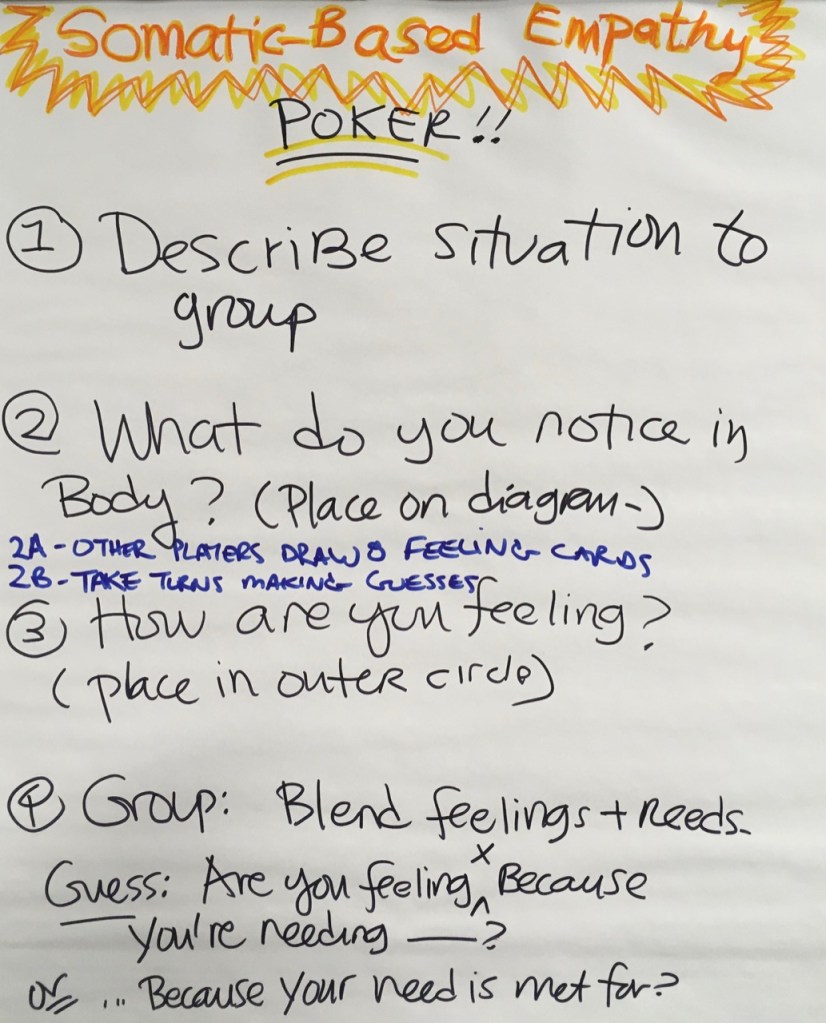 Somatic-Based Empathy
POKER!!
① Describe situation to
group
② What do you notice in
Body? (Place on diagram-)
2A - OTHER PLAYERS DRAW 8 FEELING CARDS
2B - TAKE TURNS MAKING GUESSES
③ How are you feeling?
(place in outer circle)
④ Group: Blend feelings + needs-
Guess: Are you feeling x Because
You're needing —?
or ... Because your need is met for?